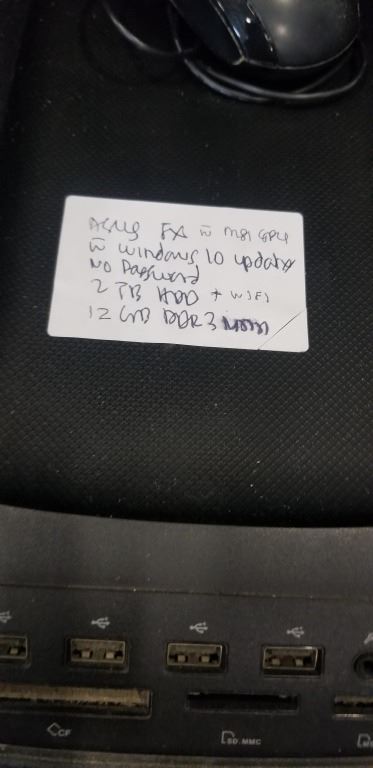 ASUS FX w̄ MSI GPU
w̄ windows 10 updates
No Password
2 TB HDD + WIFI
12 GB DDR3
CF
SD.MMC